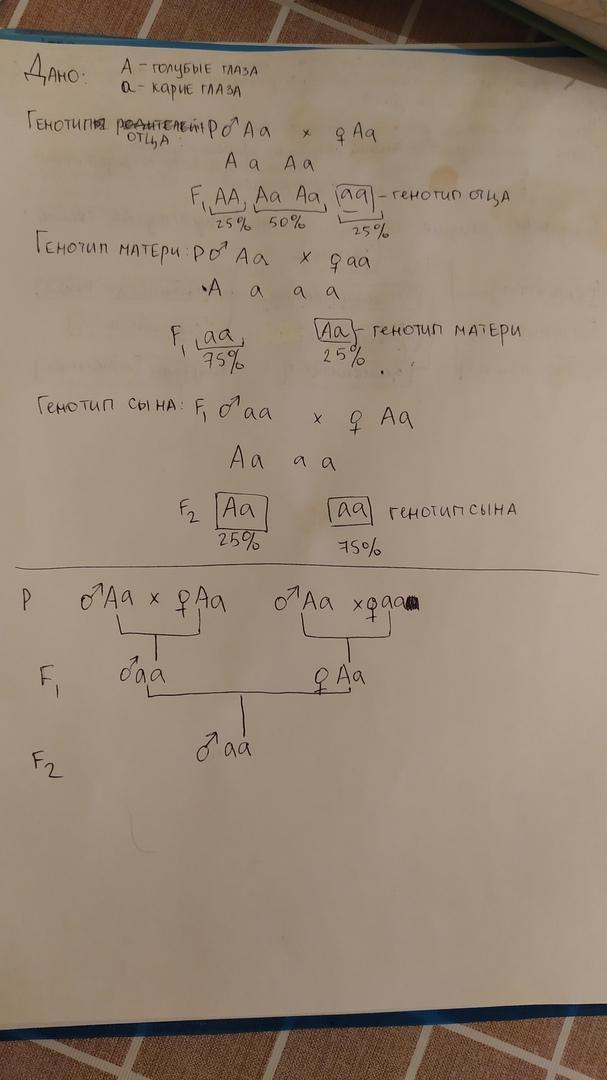 Дано: А - голубые глаза
а - карие глаза
Генотип отца P ♂ Aa x ♀ Aa
A a A a
F1 AA Aa Aa aa - генотип отца
25% 50% 25%
Генотип матери: P ♂ Aa x ♀ aa
A a a a
F1 aa Aa - генотип матери
75% 25%
Генотип сына: F1 ♂ aa x ♀ Aa
Aa a a
F2 Aa aa генотип сына
25% 75%
P ♂ Aa x ♀ Aa ♂ Aa x ♀ aa
F1 ♂ aa ♀ Aa
♂ aa
F2